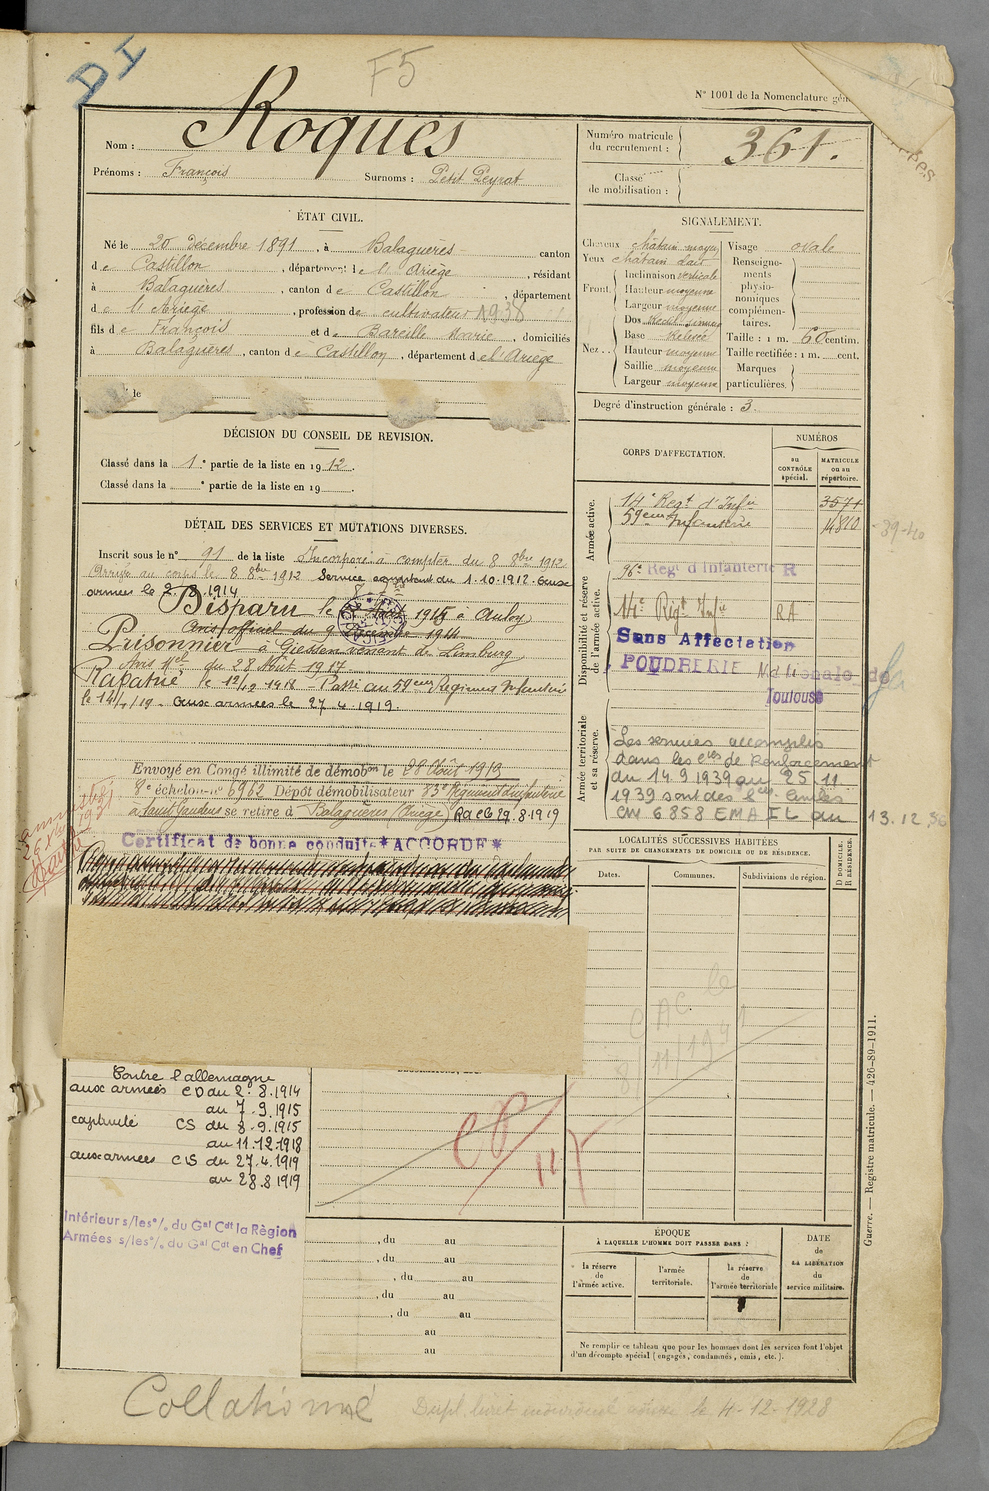 DI
F5
N° 1001 de la Nomenclature gén
Nom : Roques
Prénoms : François Surnoms : Petit Peyrat
Numéro matricule du recrutement : 361.
Classe de mobilisation :
ÉTAT CIVIL.
Né le 20 décembre 1891, à Balaguères canton
de Castillon, département de l'Ariège, résidant
à Balaguères, canton de Castillon, département
de l'Ariège, profession de cultivateur 1938
fils de François et de Bareille Marie, domiciliés
à Balaguères, canton de Castillon, département de l'Ariège
le
SIGNALEMENT.
Cheveux châtain moyen
Yeux châtain clair
Front. Inclinaison verticale
Hauteur moyenne
Largeur moyenne
Nez.. Dos
Base Relevée
Hauteur moyenne
Saillie moyenne
Largeur moyenne
Visage ovale
Renseignements physionomiques complémentaires.
Taille : 1 m. 60 centim.
Taille rectifiée : 1 m. cent.
Marques particulières.
Degré d'instruction générale : 3.
DÉCISION DU CONSEIL DE REVISION.
Classé dans la 1e partie de la liste en 1912.
Classé dans la e partie de la liste en 19
DÉTAIL DES SERVICES ET MUTATIONS DIVERSES.
Inscrit sous le n° 91 de la liste Incorporé à compter du 8 8bre 1912
Arrivé au corps le 8 8bre 1912 Service comptant du 1.10.1912. Aux
armées le 2.8.1914
Disparu le 1915 à Auloy
Avis officiel du 9 1914
Prisonnier à Giessen venant de Limburg
Avis Mel du 28 Août 1917
Rapatrié le 12/12 1918 Passé au 59eme Régiment Infanterie
le 14/1/19 - aux armées le 27.4.1919.
Envoyé en Congé illimité de démobon le 28 Août 1919
8e échelon n° 6962 Dépôt démobilisateur 83e Régiment d'infanterie
à Saint Gaudens se retire à Balaguères (Ariège) RaCG 29.8.1919
Certificat de bonne conduite *ACCORDÉ*
CORPS D'AFFECTATION.
NUMÉROS
au CONTRÔLE spécial.
MATRICULE ou au répertoire.
Armée active.
14e Regt d'Infie 3571
59eme Infanterie 14840
39-40
Disponibilité et réserve de l'armée active.
96e Regt d'Infanterie R
14e Régt Infie RA
Sans Affectation
POUDRERIE Nationale de
Toulouse
Armée territoriale et sa réserve.
Les services accomplis
dans les Cies de Renforcement
du 14.9.1939 au 25.11.
1939 sont des Sces Civiles
CM 6858 EMA IL du 13.12.36
LOCALITÉS SUCCESSIVES HABITÉES
PAR SUITE DE CHANGEMENTS DE DOMICILE OU DE RÉSIDENCE.
Dates. Communes. Subdivisions de région.
D DOMICILE. R RÉSIDENCE.
CAC le
8/11/1941
Contre l'allemagne
aux armées CD du 2.8.1914
au 7.9.1915
captivité CS du 8.9.1915
au 11.12.1918
aux armées CS du 27.4.1919
au 28.8.1919
Intérieur s/les °/. du Gal Cdt la Règion
Armées s/les °/. du Gal Cdt en Chef
, du au
, du au
, du au
, du au
, du au
au
au
ÉPOQUE
À LAQUELLE L'HOMME DOIT PASSER DANS :
la réserve de l'armée active.
l'armée territoriale.
la réserve de l'armée territoriale
DATE de LA LIBÉRATION du service militaire.
Ne remplir ce tableau que pour les hommes dont les services font l'objet
d'un décompte spécial (engagés, condamnés, omis, etc.).
Guerre. — Registre matricule. — 426-89-1911.
Collationné
Dupl. livret individuel le 4-12-1928